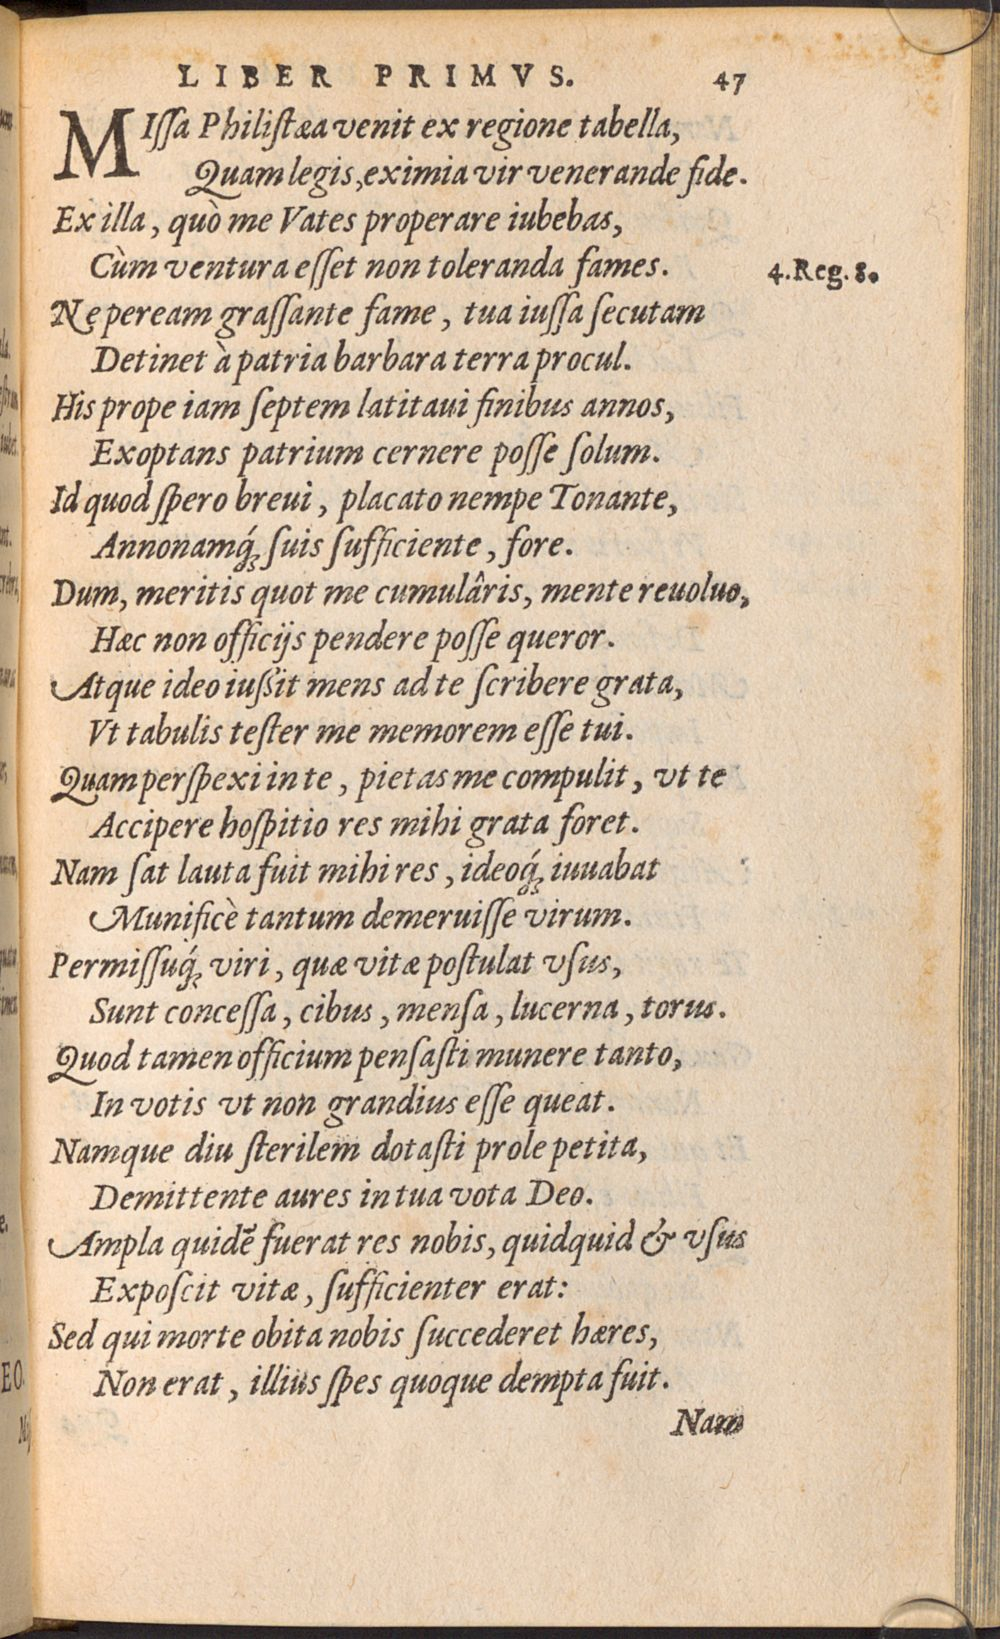 LIBER PRIMVS. 47
MIſſa Philiſtæa venit ex regione tabella,
Quam legis, eximia vir venerande fide.
Ex illa, quò me Vates properare iubebas,
Cùm ventura eſſet non toleranda fames.
4. Reg. 8.
Ne peream graſſante fame, tua iuſſa ſecutam
Detinet à patria barbara terra procul.
His prope iam ſeptem latitaui finibus annos,
Exoptans patrium cernere poſſe ſolum.
Id quod ſpero breui, placato nempe Tonante,
Annonamq́ꝫ ſuis ſufficiente, fore.
Dum, meritis quot me cumulâris, mente reuoluo,
Hæc non officijs pendere poſſe queror.
Atque ideo iuſsit mens ad te ſcribere grata,
Vt tabulis teſter me memorem eſſe tui.
Quam perſpexi in te, pietas me compulit, vt te
Accipere hoſpitio res mihi grata foret.
Nam ſat lauta fuit mihi res, ideoq́ꝫ iuuabat
Munificè tantum demeruiſſe virum.
Permiſſuq́ꝫ viri, quæ vitæ poſtulat vſus,
Sunt conceſſa, cibus, menſa, lucerna, torus.
Quod tamen officium penſaſti munere tanto,
In votis vt non grandius eſſe queat.
Namque diu ſterilem dotaſti prole petita,
Demittente aures in tua vota Deo.
Ampla quidẽ fuerat res nobis, quidquid & vſus
Expoſcit vitæ, ſufficienter erat:
Sed qui morte obita nobis ſuccederet hæres,
Non erat, illius ſpes quoque dempta fuit.
Nam